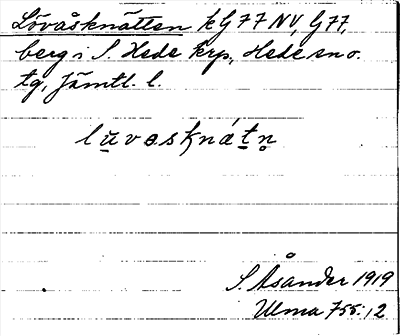 Lövåsknätten kG77NV, G77,
berg i S. Hede krp, Hede sn o.
tg, Jämtl. l.
lu̱vasknát̠n̥
S. Åsander 1919
Ulma 755:12